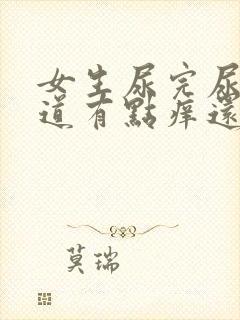 女生尿完尿
道有點痒還
莫瑞